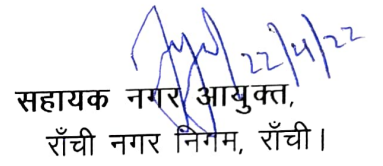 22/4/22
सहायक नगर आयुक्त,
राँची नगर निगम, राँची।